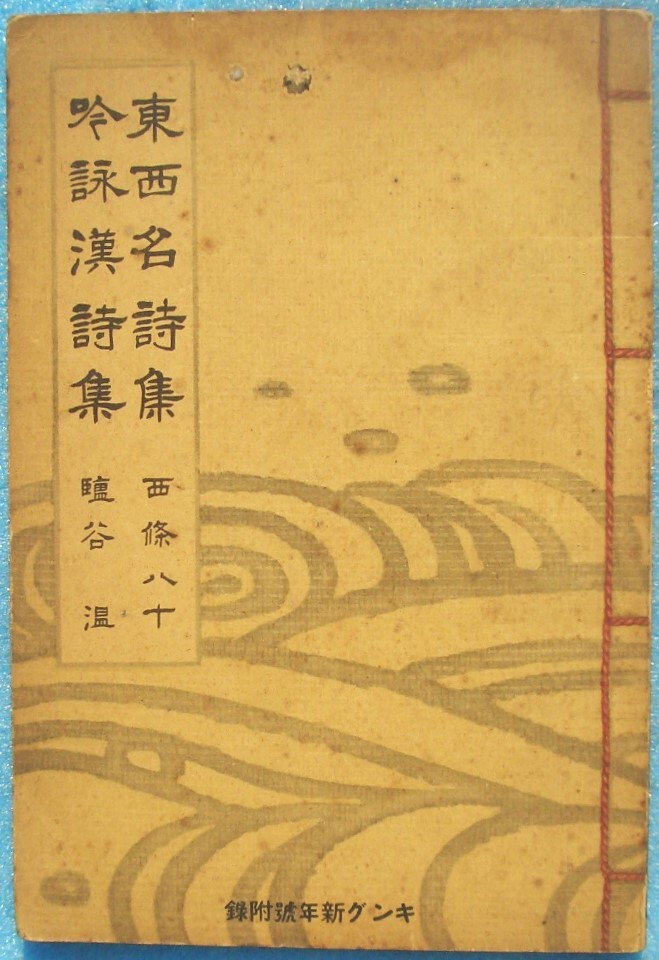 東西名詩集 西條八十
吟詠漢詩集 鹽谷温
キング新年號附錄